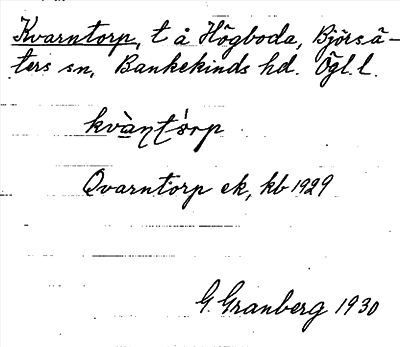 Kvarntorp, t å Högboda, Björsä-
ters sn, Bankekinds hd. Ögl. l.
kvàṇtórp
Qvarntorp ek, kb 1929
G. Granberg 1930